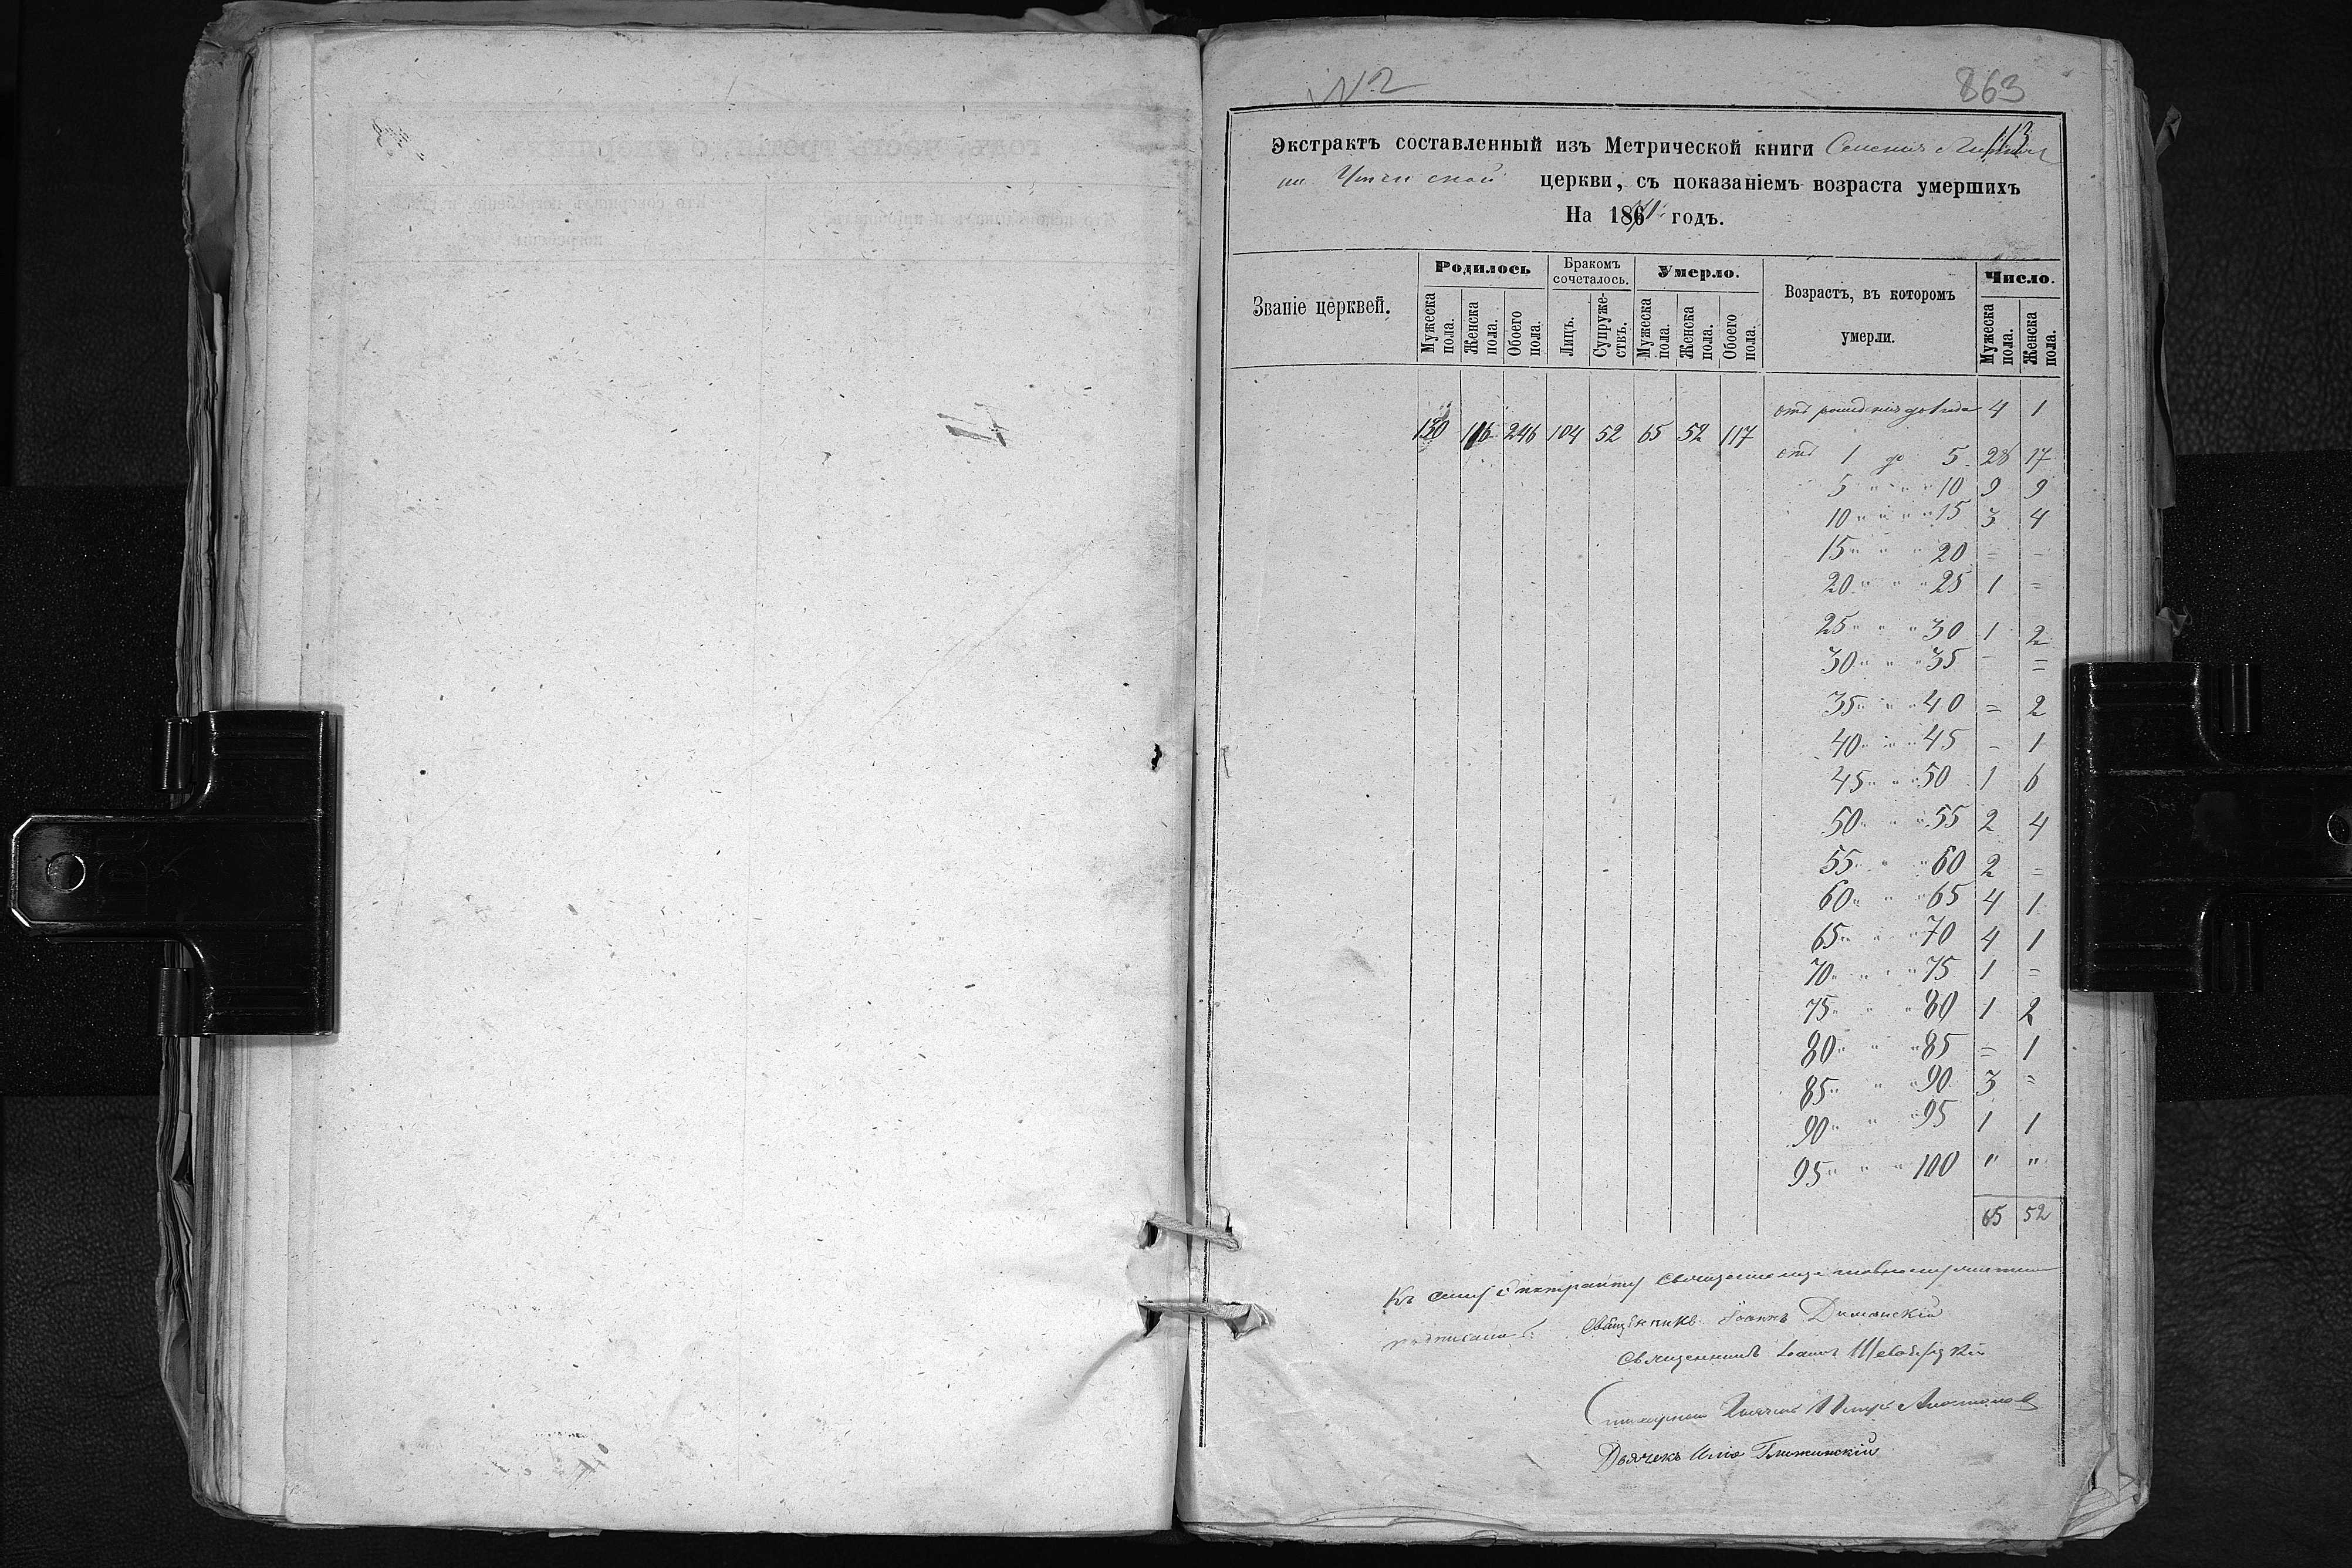 N2
863
113
Экстрактъ составленный изъ Метрической книги Селенія
церкви, съ показаніемъ возраста умершихъ
На 1871 годъ.
Званіе церквей.
Родилось
Бракомъ сочеталось.
Умерло.
Возрастъ, въ которомъ умерли.
Число.
Мужеска пола. Женска пола. Обоего пола. Лицъ. Супружествъ. Мужеска пола. Женска пола. Обоего пола. Мужеска пола. Женска пола.
130 116 246 104 52 65 52 117
отъ рожденія до 1 года 4 1
отъ 1 до 5 28 17
5 " " " 10 9 9
10 " " " 15 3 4
15 " " " 20 = =
20 " " " 25 1 =
25 " " " 30 1 2
30 " " " 35 - =
35 " " " 40 = 2
40 " " " 45 - 1
45 " " " 50 1 6
50 " " " 55 2 4
55 " " " 60 2 =
60 " " " 65 4 1
65 " " " 70 4 1
70 " " " 75 1 =
75 " " " 80 1 2
80 " " " 85 = 1
85 " " " 90 3 =
90 " " " 95 1 1
95 " " " 100 " "
65 52
Къ сему экстракту священно и церковнослужители
подписались: Священникъ Іоаннъ
Священникъ Іоаннъ
Петръ
Дьячекъ Илія